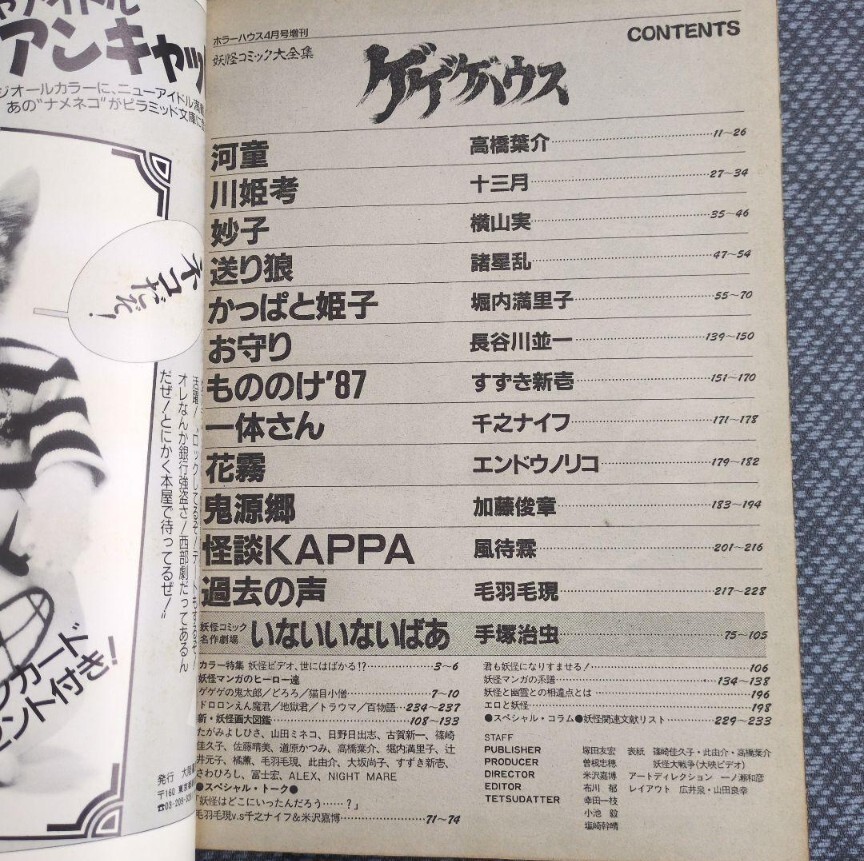 アンキャッ
ジオールカラーに、ニューアイドル満載
あの"ナメネコ"がピラミッド文庫に
ネコだぞ!
オレなんか銀行強盗さ!西部劇だってあるん
だぜ!とにかく本屋で待ってるぜ!"
カード
ント付き!
ホラーハウス4月号増刊
妖怪コミック大全集
ゲゲゲハウス
CONTENTS
河童 高橋葉介 11~26
川姫考 十三月 27~34
妙子 横山実 35~46
送り狼 諸星乱 47~54
かっぱと姫子 堀内満里子 55~70
お守り 長谷川並一 139~150
もののけ'87 すずき新壱 151~170
一体さん 千之ナイフ 171~178
花霧 エンドウノリコ 179~182
鬼源郷 加藤俊章 183~194
怪談KAPPA 風待霖 201~216
過去の声 毛羽毛現 217~228
妖怪コミック名作劇場 いないいないばあ 手塚治虫 75~105
カラー特集 妖怪ビデオ、世にはばかる!? 3~6
妖怪マンガのヒーロー達
ゲゲゲの鬼太郎/どろろ/猫目小僧 7~10
ドロロンえん魔君/地獄君/トラウマ/百物語 234~237
新・妖怪画大図鑑 108~133
たがみよしひさ、山田ミネコ、日野日出志、古賀新一、篠崎
佳久子、佐藤晴美、道原かつみ、高橋葉介、堀内満里子、辻
井元子、橘薫、毛羽毛現、此由介、大坂尚子、すずき新壱、
さわひろし、富士宏、ALEX、NIGHT MARE
●スペシャル・トーク●
「妖怪はどこにいったんだろう……?」
毛羽毛現v.s千之ナイフ&米沢嘉博 71~74
君も妖怪になりすませる! 106
妖怪マンガの系譜 134~138
妖怪と幽霊との相違点とは 196
エロと妖怪 198
●スペシャル・コラム●妖怪関連文献リスト 229~233
STAFF
PUBLISHER 塚田友宏 表紙 篠崎佳久子・此由介・高橋葉介
PRODUCER 曽根忠穂 妖怪大戦争(大映ビデオ)
DIRECTOR 米沢嘉博 アートディレクション 一ノ瀬和彦
EDITOR 布川郁 レイアウト 広井泉・山田良幸
TETSUDATTER 幸田一枝
小池毅
塩崎幹晴